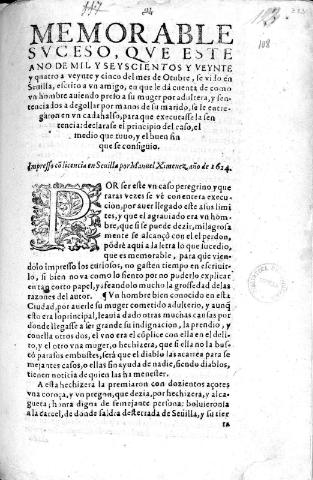 117
108
MEMORABLE
SVCESO, QVE ESTE
AÑO DE MIL Y SEYSCIENTOS Y VEYNTE
y quatro a veynte y cinco del mes de Otubre, se vido en
Seuilla, escrito a vn amigo, en que le dá cuenta de como
vn hombre auiendo preso a su muger por adultera, y sen-
tenciados a degollar por manos de su marido, se le entre-
garon en vn cadahalso, para que executasse la sen
tencia: declarase el principio del caso, el
medio que tuuo, y el buen fin
que se consiguio.
Impresso cō licencia en Seuilla por Manuel Ximenez, año de 1624.
POR ser este vn caso peregrino y que
raras vezes se vè con entera execu-
cion, por auer llegado este a los limi
tes, y que el agrauiado era vn hom
bre, que si se puede dezir, milagrosa
mente se alcançò con el el perdon,
podrè aqui a la letra lo que sucedio,
que es memorable, para que vien-
dolo impresso los curiosos, no gasten tiempo en escriuir-
lo, si bien no va como lo siento por no puderlo explicar
en tan corto papel, y afeandolo mucho la grossedad de las
razones del autor. ¶ Vn hombre bien conocido en esta
Ciudad, por auerle su muger cometido adulterio, y aunq̃
esto era lo principal, leauia dado otras muchas causas por
donde llegasse a ser grande su indignacion, la prendio, y
con ella otros dos, el vno era el còplice con ella en el deli-
to, y el otro vna muger, o hechizera, que si ella no la bus-
cò para sus embustes, serà que el diablo las acarrea para se
mejantes casos, o ellas sin ayuda de nadie, siendo diablos,
tienen noticia de quien las ha menester.
A esta hechizera la premiaron con dozientos açotes
vna coroça, y vn pregon, que dezia, por hechizera, y alca-
gueta; honra digna de semejante persona: boluieronla
a la carcel, de donde saldra desterrada de Seuilla, y su tier
ra